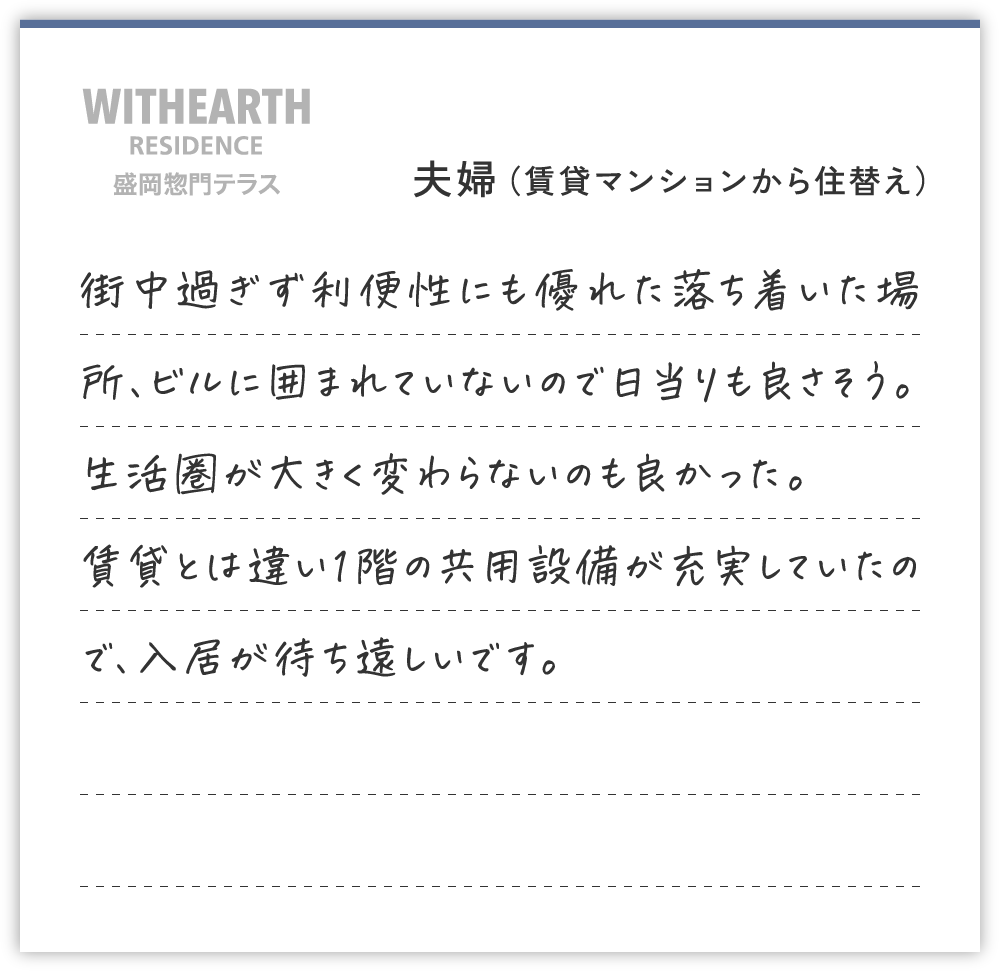 WITHEARTH
RESIDENCE
盛岡惣門テラス
夫婦（賃貸マンションから住替え）
街中過ぎず利便性にも優れた落ち着いた場
所、ビルに囲まれていないので日当りも良さそう。
生活圏が大きく変わらないのも良かった。
賃貸とは違い1階の共用設備が充実していたの
で、入居が待ち遠しいです。